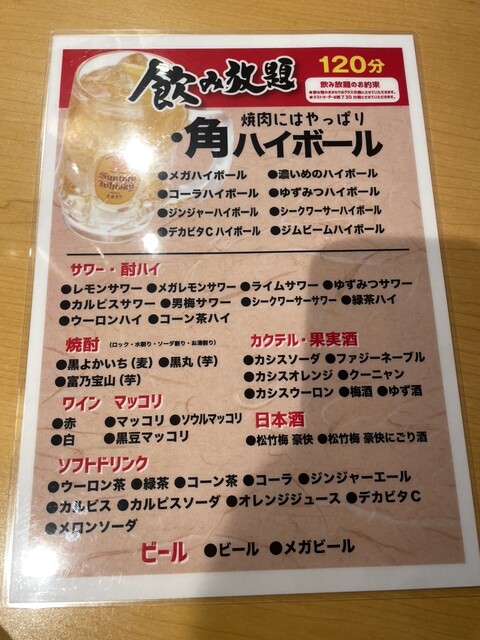 飲み放題
120分
飲み放題のお約束
焼肉にはやっぱり
・角ハイボール
●メガハイボール ●濃いめのハイボール
●コーラハイボール ●ゆずみつハイボール
●ジンジャーハイボール ●シークワーサーハイボール
●デカビタCハイボール ●ジムビームハイボール
サワー・酎ハイ
●レモンサワー ●メガレモンサワー ●ライムサワー ●ゆずみつサワー
●カルピスサワー ●男梅サワー ●シークワーサーサワー ●緑茶ハイ
●ウーロンハイ ●コーン茶ハイ
焼酎 (ロック・水割り・ソーダ割り・お湯割り)
●黒よかいち(麦) ●黒丸(芋)
●富乃宝山(芋)
カクテル・果実酒
●カシスソーダ ●ファジーネーブル
●カシスオレンジ ●クーニャン
●カシスウーロン ●梅酒 ●ゆず酒
ワイン マッコリ
●赤 ●マッコリ ●ソウルマッコリ
●白 ●黒豆マッコリ
日本酒
●松竹梅 豪快 ●松竹梅 豪快にごり酒
ソフトドリンク
●ウーロン茶 ●緑茶 ●コーン茶 ●コーラ ●ジンジャーエール
●カルピス ●カルピスソーダ ●オレンジジュース ●デカビタC
●メロンソーダ
ビール ●ビール ●メガビール